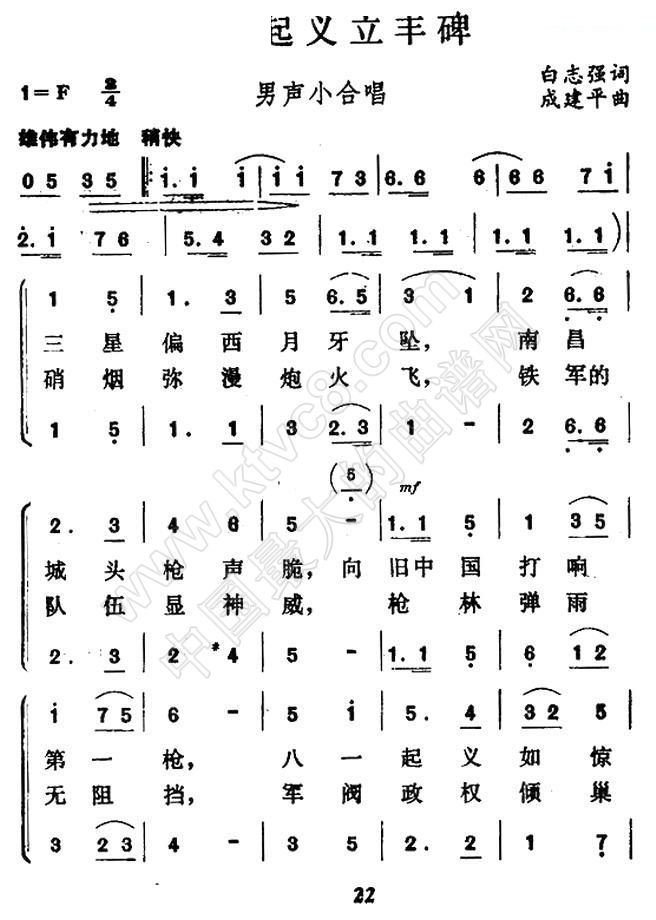 起义立丰碑
1=F 2/4 男声小合唱 白志强词
成建平曲
雄伟有力地 稍快
0 5 3 5 ‖: i. i i | i i 7 3 | 6. 6 6 | 6 6 7 i |
2. i 7 6 | 5. 4 3 2 | 1. 1 1. 1 | 1. 1 1. 1 ) |
1 5 | 1. 3 | 5 6. 5 | 3 1 | 2 6. 6 |
三星偏西月牙坠，南昌
硝烟弥漫炮火飞，铁军的
1 5 | 1. 1 | 3 2. 3 | 1 - | 2 6. 6 |
(5) mf
2. 3 | 4 6 | 5 - | 1. 1 5 | 1 3 5 |
城头枪声脆，向旧中国打响
队伍显神威，枪林弹雨
2. 3 | 2 #4 | 5 - | 1. 1 5 | 6 1 2 |
i 7 5 | 6 - | 5 i | 5. 4 | 3 2 5 |
第一枪，八一起义如惊
无阻挡，军阀政权倾巢
3 2 3 | 4 - | 3 5 | 2. 2 | 1 7 |
22
www.ktvc8.com
中国最大的曲谱网